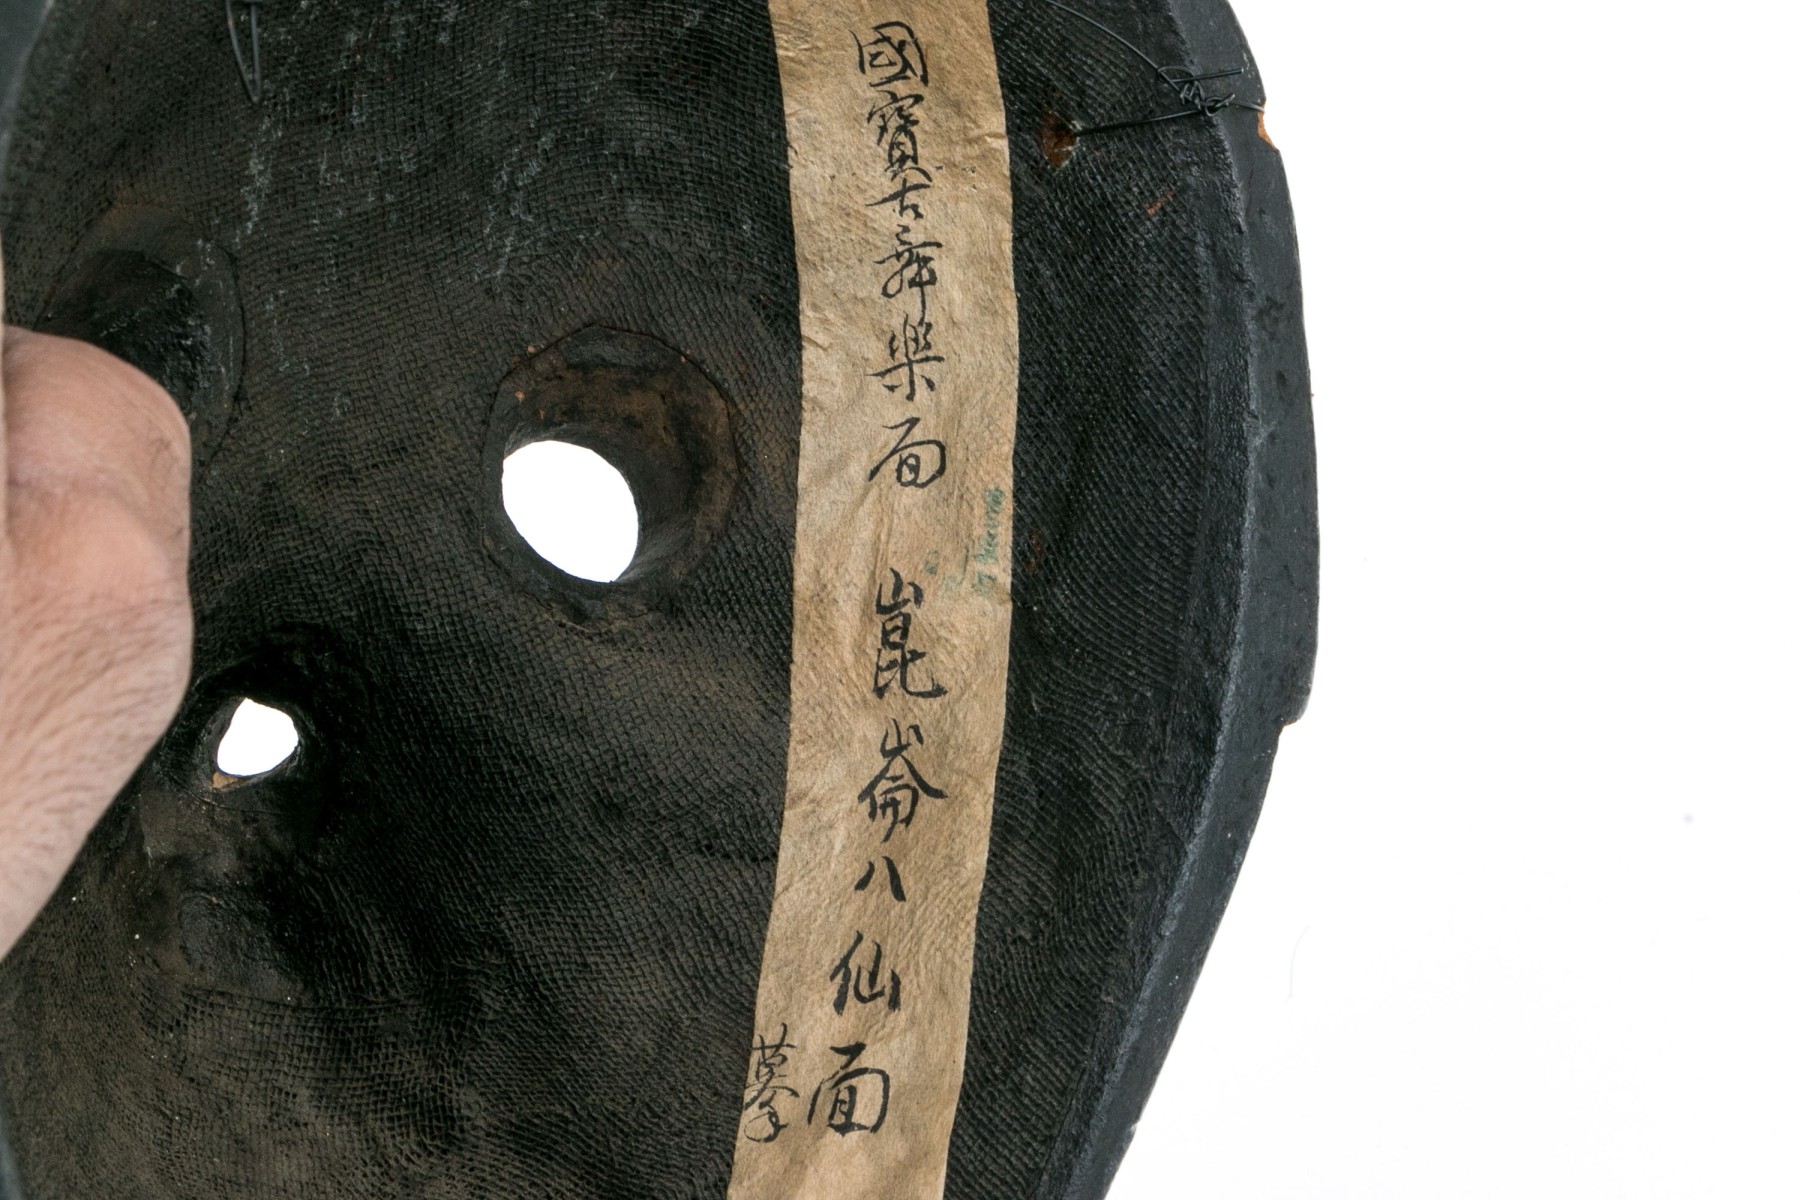 國寶古舞楽面 崑崙八仙面
摹